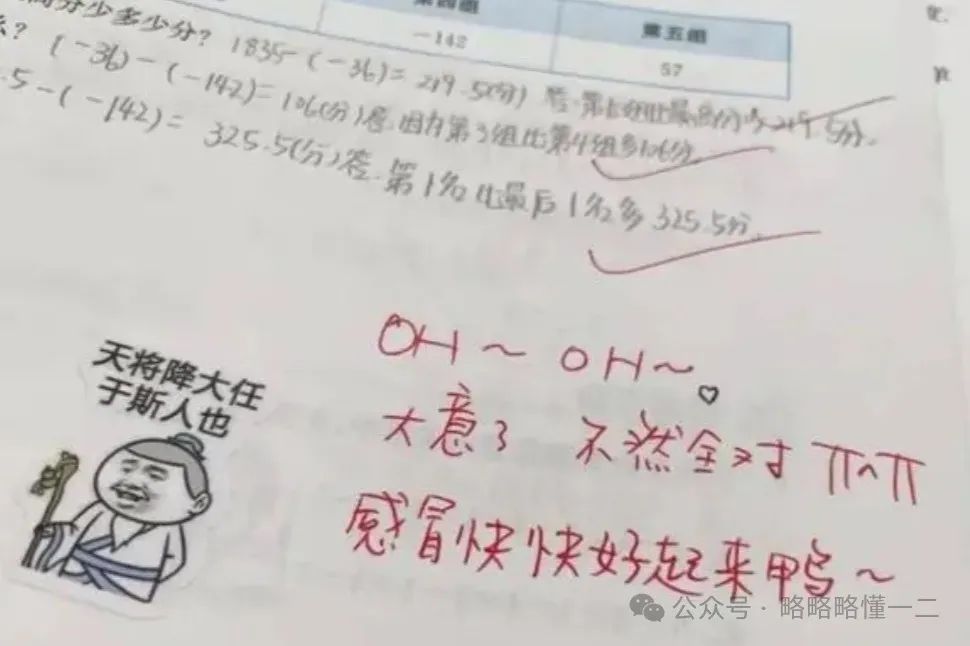 第四组 第五组
-142 57
高分少多少分? 1835-(-36)=219.5(分) 答:第1组比最
5分.
么? (-36)-(-142)=106(分)答.因为第3组比第4组多106分.
.5-(-142)= 325.5(分)答.第1名比最后1名多325.5分.
OH~OH~
大意了 不然全对 ππ
感冒快快好起来鸭~
天将降大任
于斯人也
公众号·略略略懂一二